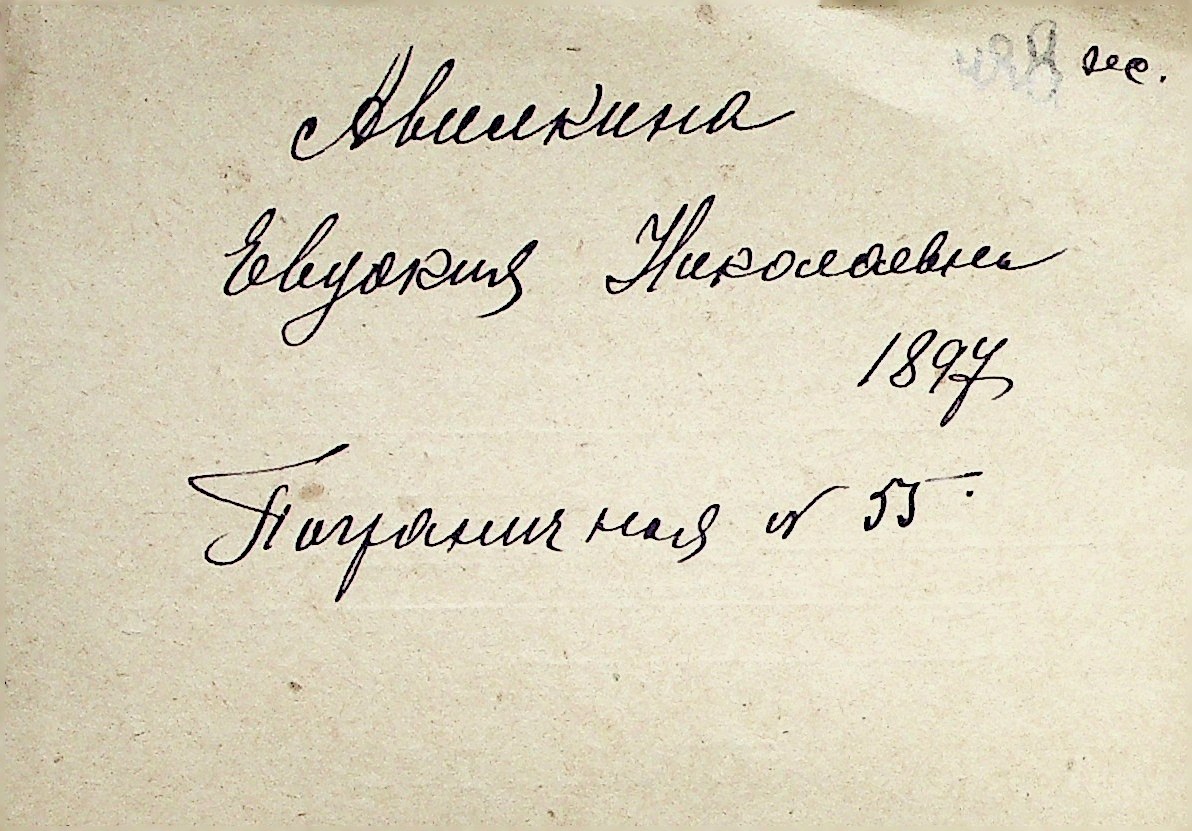 Авилкина
Евдокия Николаевна
1897
Пограничная № 55